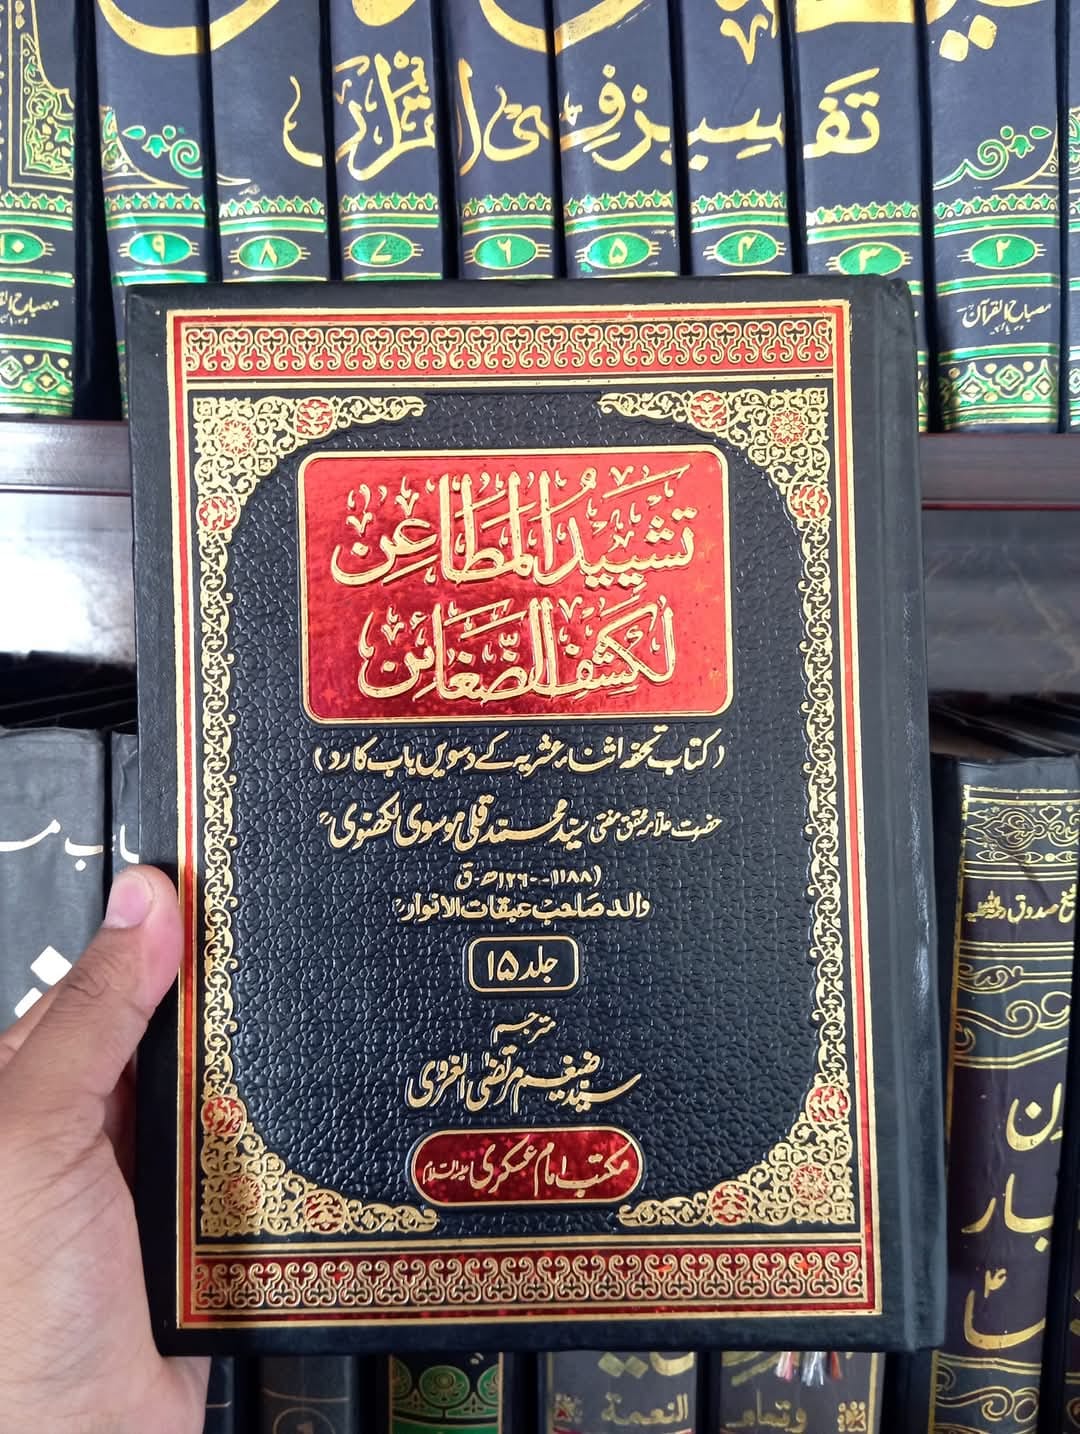 تفسیر فی القرآن
١٠ ٩ ٨ ٧ ۶ ۵ ۴ ٣ ٢
مصباح القرآن
تشیید المطاعن
لکشف الضغائن
(کتاب تحفہ اثنا عشریہ کے دسویں باب کا رد)
حضرت علامہ محقق مفتی سید محمد قلی موسوی لکھنوی
(١١٨٨--١٢٦٠ھ-ق)
والد صاحب عبقات الانوار
جلد ١۵
مترجم
سید ضیغم مرتضیٰ الغروی
مکتب امام عسکری علیہ السلام
شیخ صدوق
النعمة